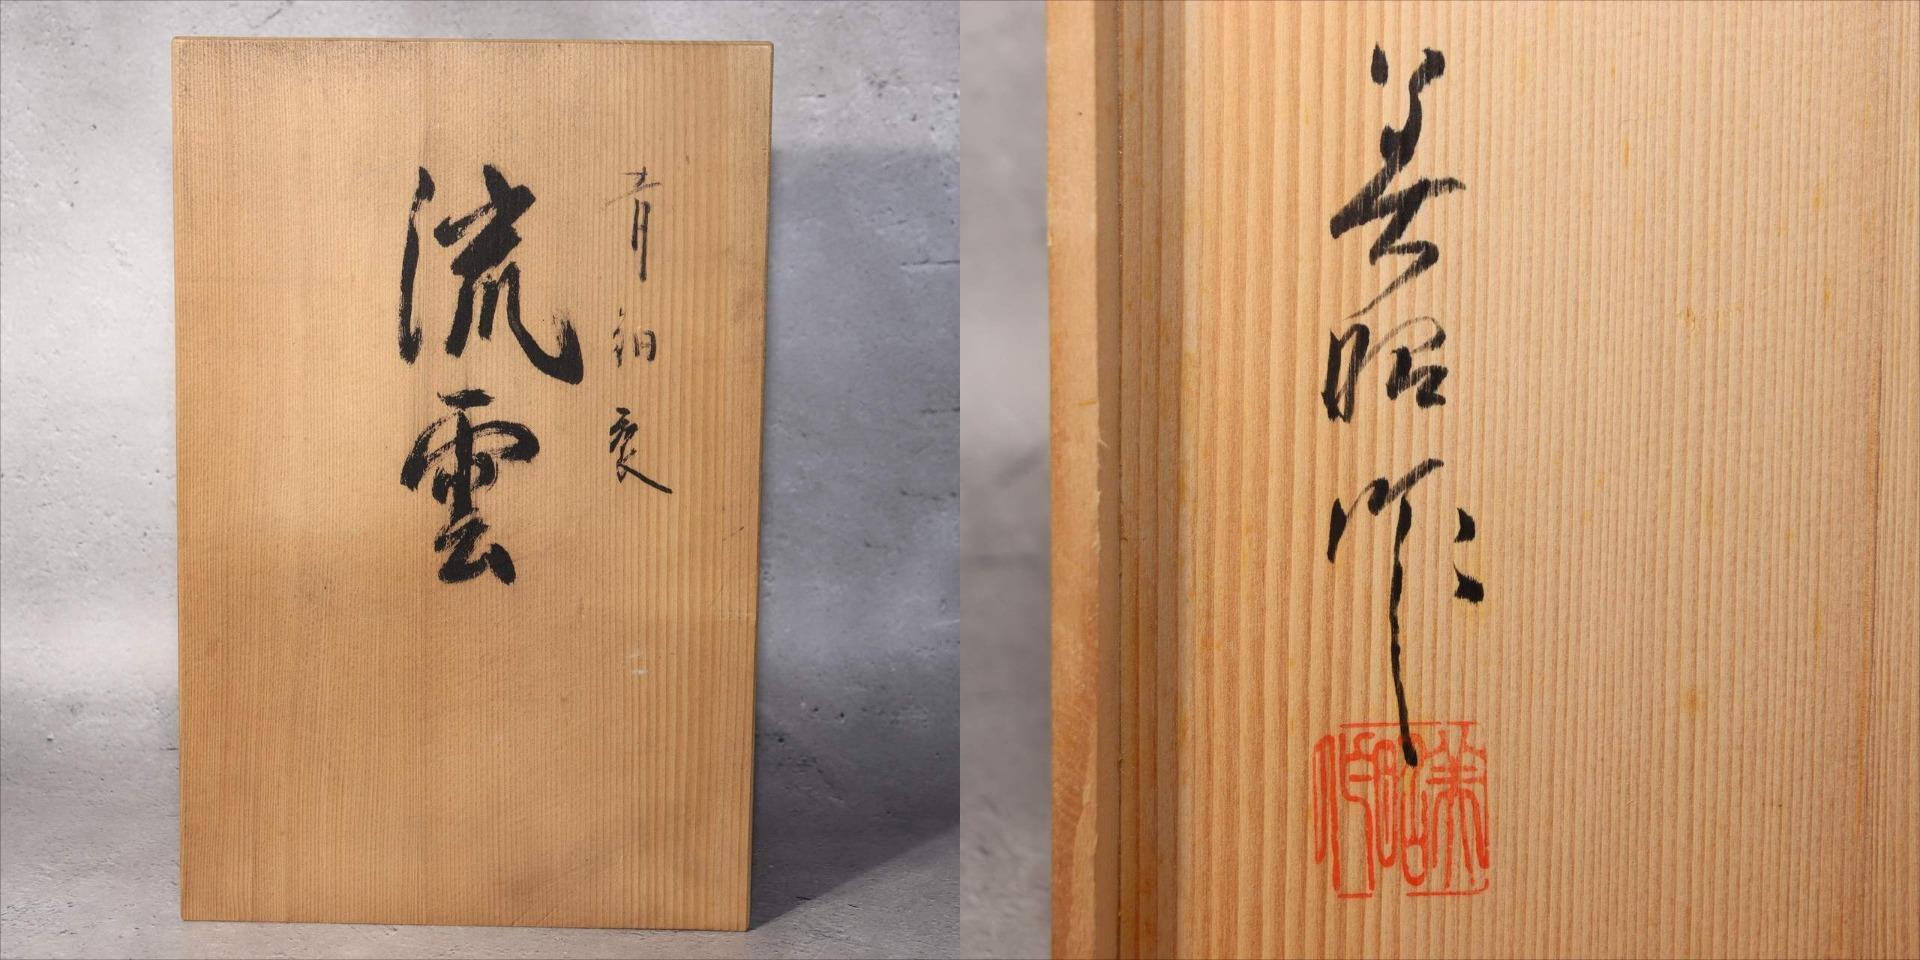 青銅製
流雲
美昭作
美昭作